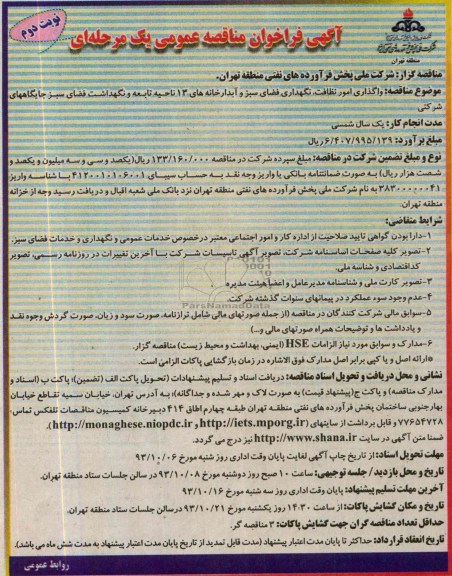 نوبت دوم
آگهی فراخوان مناقصه عمومی یک مرحله‌ای
منطقه تهران
مناقصه گزار: شرکت ملی پخش فرآورده های نفتی منطقه تهران.
موضوع مناقصه: واگذاری امور نظافت، نگهداری فضای سبز و آبدارخانه های ۱۳ ناحیه تابعه و نگهداشت فضای سبز جایگاههای
شرکتی
مدت انجام کار: یک سال شمسی
مبلغ برآورد: ۶/۴۰۷/۹۹۵/۱۳۹ ریال
نوع و مبلغ تضمین شرکت در مناقصه: مبلغ سپرده شرکت در مناقصه ۱۳۳/۱۶۰/۰۰۰ ریال(یکصد و سی و سه میلیون و یکصد و
شصت هزار ریال) به صورت ضمانتنامه بانکی یا واریز وجه نقد به حساب سیبای ۴۱۲۰۰۱۰۱۰۶۰۰۱ با شناسه واریز
۳۸۳۰۰۰۰۰۰۴۱ به نام شرکت ملی پخش فرآورده های نفتی منطقه تهران نزد بانک ملی شعبه اقبال و دریافت رسید وجه از خزانه
منطقه تهران.
شرایط متقاضی:
۱-دارا بودن گواهی تایید صلاحیت از اداره کار و امور اجتماعی معتبر درخصوص خدمات عمومی و نگهداری و خدمات فضای سبز.
۲-تصویر کلیه صفحات اساسنامه شرکت، تصویر آگهی تاسیسات شرکت با آخرین تغییرات در روزنامه رسمی، تصویر
کداقتصادی و شناسه ملی.
۳-تصویر کارت ملی و شناسنامه مدیرعامل و اعضا هیئت مدیره
۴-عدم وجود سوء عملکرد در پیمانهای سنوات گذشته شرکت.
۵-سوابق مالی شرکت کنندگان در مناقصه (از جمله صورتهای مالی شامل ترازنامه، صورت سود و زیان، صورت گردش وجوه نقد
و یادداشت ها و توضیحات همراه صورتهای مالی و..)
۶-مدارک و سوابق مورد نیاز الزامات HSE (ایمنی، بهداشت و محیط زیست) مناقصه گزار.
*ارائه اصل و یا کپی برابر اصل مدارک فوق الاشاره در زمان بازگشایی پاکات الزامی است.
نشانی و محل دریافت و تحویل اسناد مناقصه: دریافت اسناد و تسلیم پیشنهادات (تحویل پاکت الف (تضمین)؛ پاکت ب (اسناد و
مدارک مناقصه) و پاکت ج(پیشنهاد قیمت) به صورت لاک و مهر شده و جداگانه) به آدرس: تهران، خیابان سمیه تقاطع خیابان
بهارجنوبی ساختمان پخش فرآورده های نفتی منطقه تهران طبقه چهارم اطاق ۴۱۴ دبیرخانه کمیسیون مناقصات تلفکس تماس:
۷۷۶۵۴۷۲۸ و قابل برداشت از سایتهای (http://iets.mporg.ir و http://monaghese.niopdc.ir).
ضمنا متن آگهی در سایت http://www.shana.ir نیز درج می گردد.
مهلت تحویل اسناد: از تاریخ چاپ آگهی لغایت پایان وقت اداری روز شنبه مورخ ۹۳/۱۰/۰۶
تاریخ و محل بازدید/ جلسه توجیهی: ساعت ۱۰ صبح روز دوشنبه مورخ ۹۳/۱۰/۰۸ در سالن جلسات ستاد منطقه تهران.
آخرین مهلت تسلیم پیشنهاد: پایان وقت اداری روز سه شنبه مورخ ۹۳/۱۰/۱۶
تاریخ و مکان گشایش پاکات: از ساعت ۱۴:۳۰ روز یکشنبه مورخ ۹۳/۱۰/۲۱ درسالن جلسات ستاد منطقه تهران.
حداقل تعداد مناقصه گران جهت گشایش پاکات: ۳ مناقصه گر.
تاریخ انعقاد قرارداد: حداکثر تا پایان مدت اعتبار پیشنهاد (مدت قابل تمدید از تاریخ پایان مدت اعتبار پیشنهاد به مدت شش ماه می باشد).
روابط عمومی
ParsNamadData